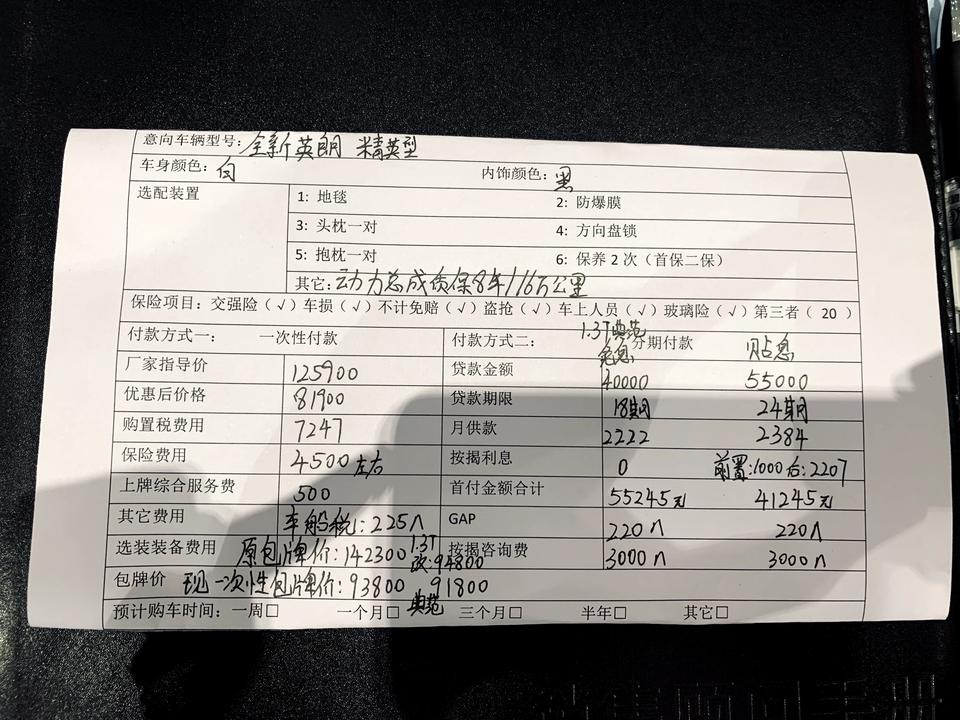 意向车辆型号: 全新英朗 精英型
车身颜色: 白 内饰颜色: 黑
选配装置 1: 地毯 2: 防爆膜
3: 头枕一对 4: 方向盘锁
5: 抱枕一对 6: 保养 2 次（首保二保）
其它: 动力总成质保8年/16万公里
保险项目: 交强险（√）车损（√）不计免赔（√）盗抢（√）车上人员（√）玻璃险（√）第三者（ 20 ）
付款方式一: 一次性付款 付款方式二: 1.3T典范 免息 分期付款 贴息
厂家指导价 125900 贷款金额 40000 55000
优惠后价格 81900 贷款期限 18期 24期
购置税费用 7247 月供款 2222 2384
保险费用 4500左右 按揭利息 0 前置:1000 右:2207
上牌综合服务费 500 首付金额合计 55245元 41245元
其它费用 车船税: 225 GAP 220 220
选装装备费用 原包牌价: 142300 1.3T 改: 94800 按揭咨询费 3000 3000
包牌价 现一次性包牌价: 93800 91800 典范
预计购车时间: 一周□ 一个月□ 三个月□ 半年□ 其它□